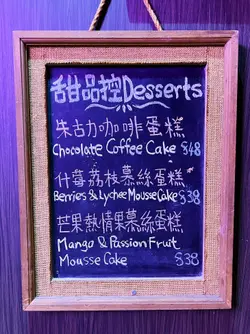 甜品控Desserts
朱古力咖啡蛋糕
Chocolate Coffee Cake $48
什莓荔枝慕絲蛋糕
Berries & Lychee Mousse Cake $38
芒果熱情果慕絲蛋糕
Mango & Passion Fruit
Mousse Cake $38